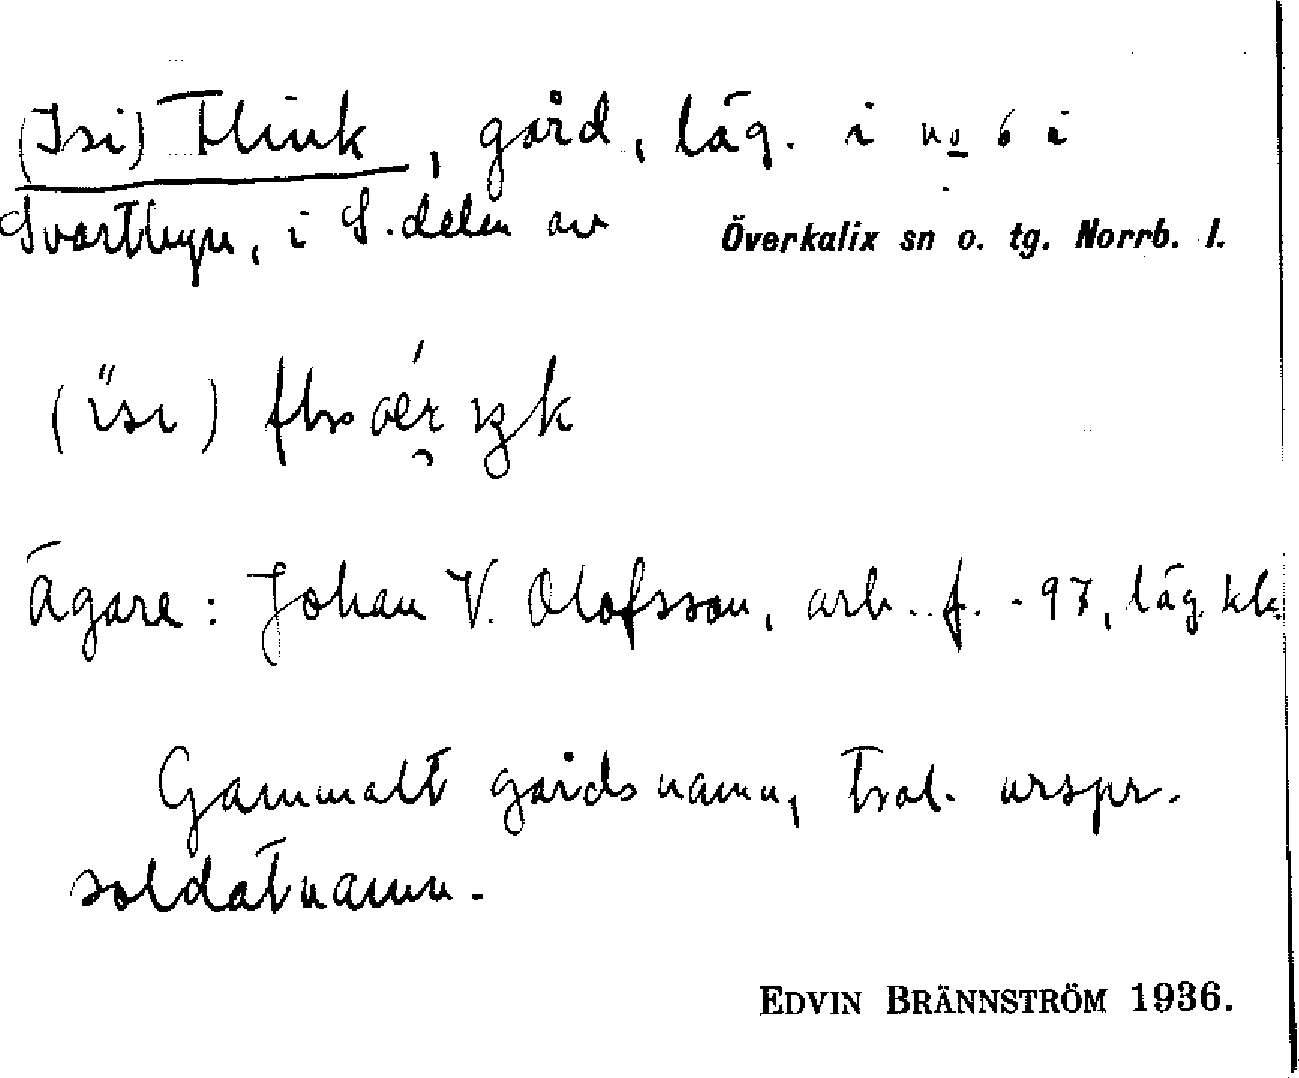 (Isi) Flink, gård, läg. i no 6 i
Svartbyn, i S. delen av
Överkalix sn o. tg. Norrb. l.
(ïsi)
Ägare: Johan V. Olofsson, arb. f. -97, läg. kl.
Gammalt gårdsnamn, trol. urspr.
soldatnamn.
EDVIN BRÄNNSTRÖM 1936.